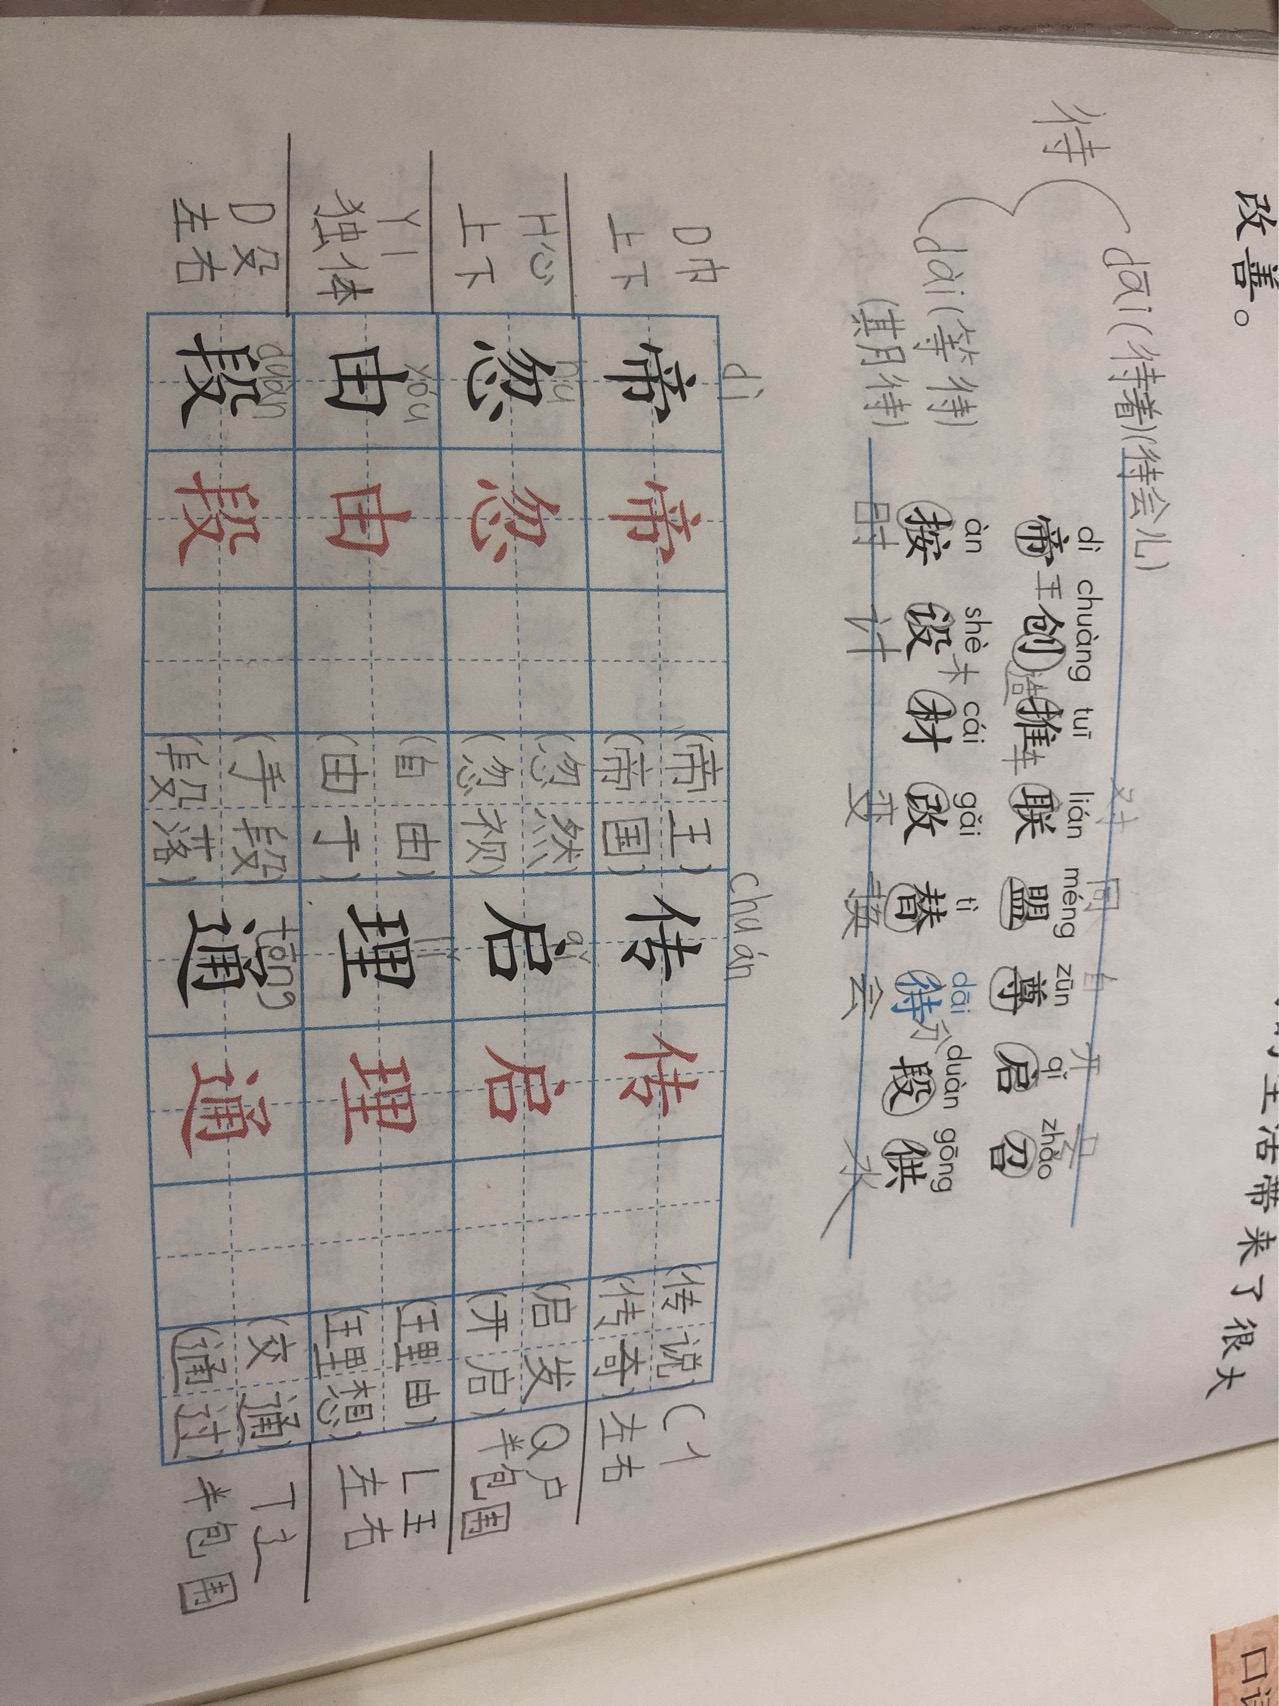 生活带来了很大
改善。
待
dāi(待着)(待会儿)
dài(等待)
(其月待)
dì chuàng tuī lián méng zūn qǐ zhào
帝王创造推车联盟尊启召
对 同 自 开 号
àn shè cái gǎi tì dāi duàn gōng
按设卡材改替待分段供
时 计 变 换 会 水
dì
chuán
D巾
上下
帝 帝 (帝王)
(帝国)
传 传 (传说)
(传奇)
C亻
左右
H心
上下
hū
忽 忽 (忽然)
(忽视)
qǐ
启 启 (启发)
(开启)
Q户
半包围
Y丨
独体
yóu
由 由 (自由)
(由于)
lǐ
理 理 (理由)
(理想)
L王
左右
D殳
左右
duàn
段 段 (手段)
(段落)
tōng
通 通 (交通)
(通过)
T辶
半包围